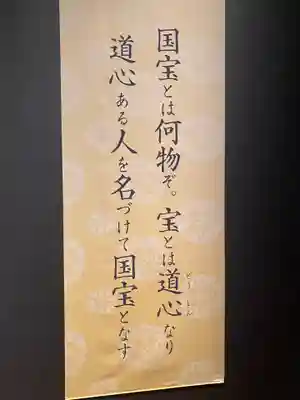 国宝とは何物ぞ。宝とは道心なり
道心ある人を名づけて国宝となす